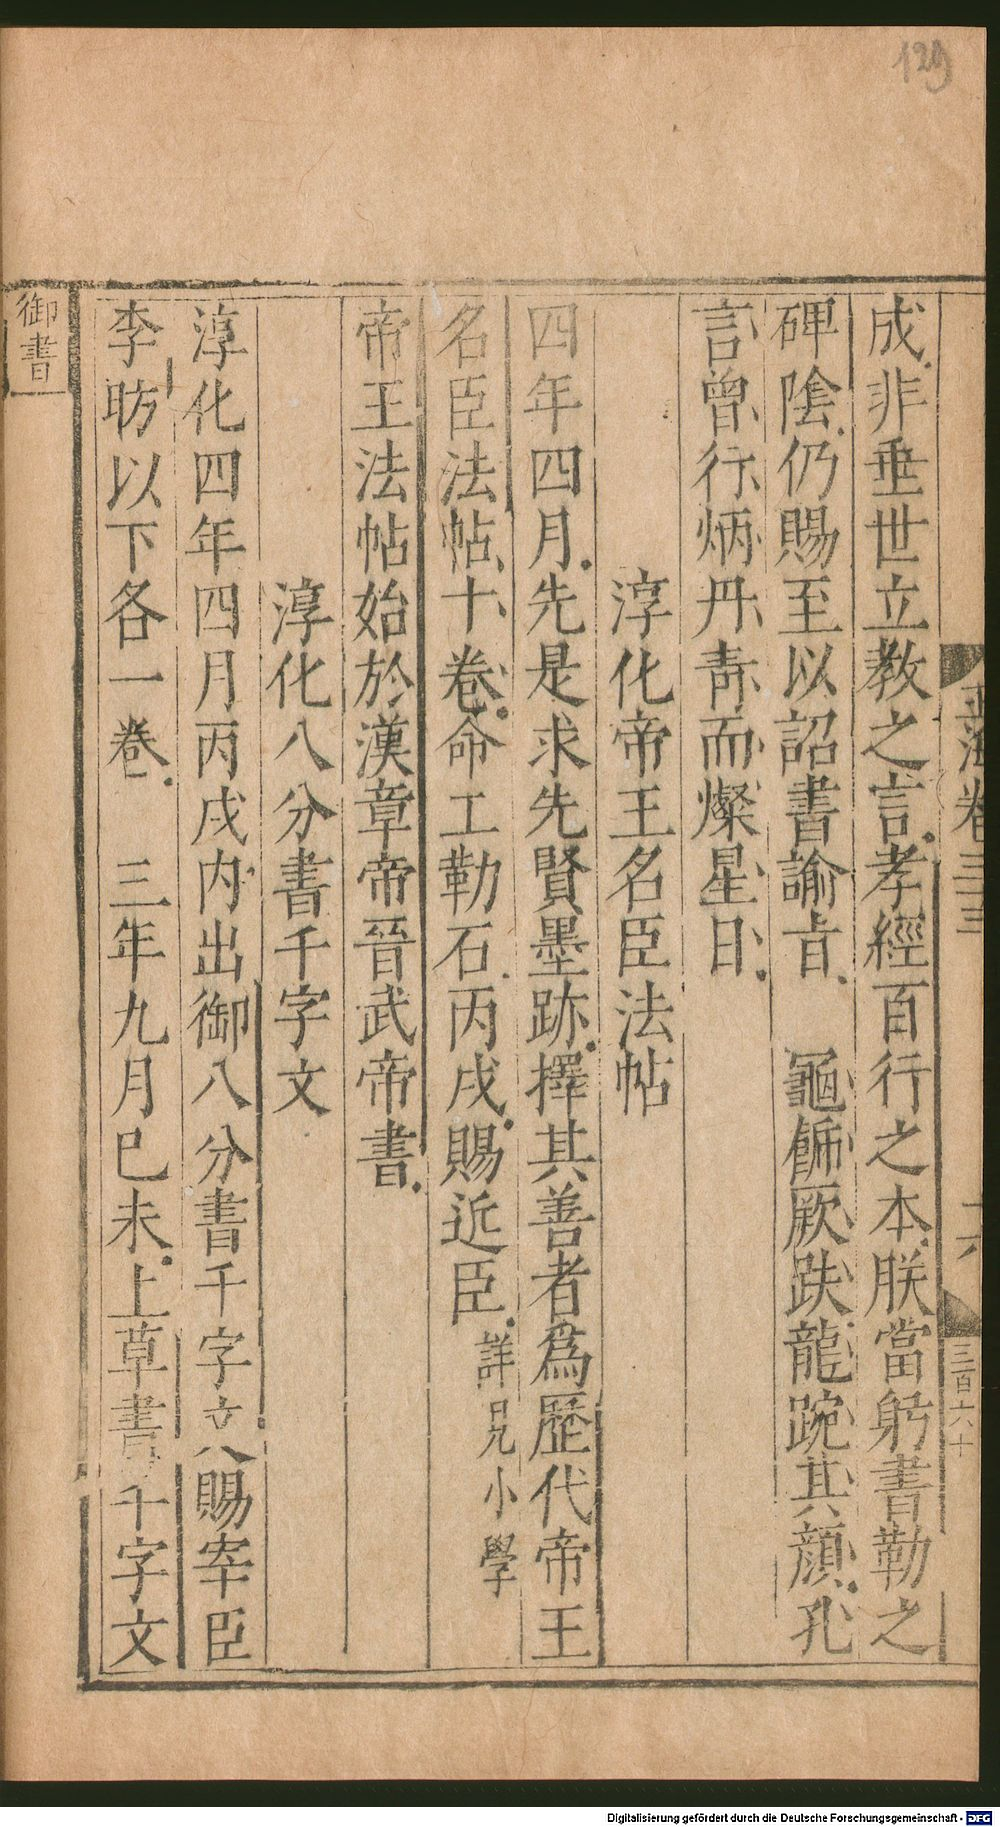 129
玉海卷三三
十六
三百六十
成非垂世立教之言孝經百行之本朕當躬書勒之
碑陰仍賜至以詔書諭旨 龜餙厥趺龍踠其顔孔
言曾行炳丹青而燦星日
淳化帝王名臣法帖
四年四月先是求先賢墨跡擇其善者為歷代帝王
名臣法帖十卷命工勒石丙戌賜近臣詳見小學
帝王法帖始於漢章帝晉武帝書
淳化八分書千字文
淳化四年四月丙戌内出御八分書千字文賜宰臣
李昉以下各一卷 三年九月巳未上草書千字文
御書
Digitalisierung gefördert durch die Deutsche Forschungsgemeinschaft - DFG